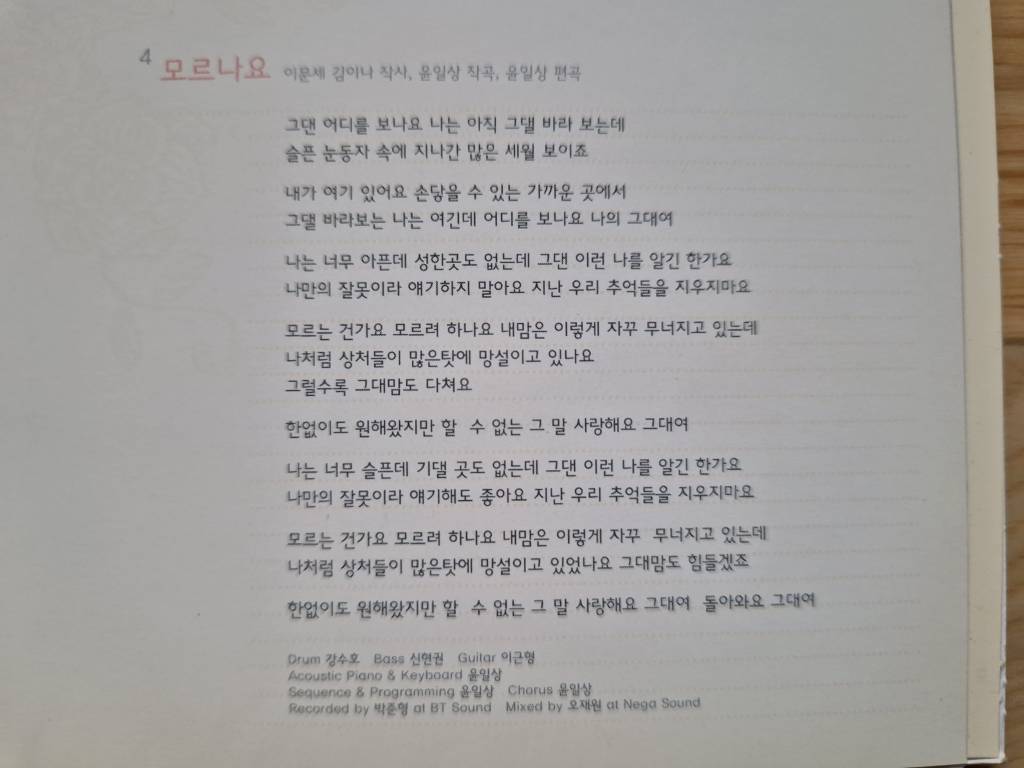 4 모르나요 이문세 김이나 작사, 윤일상 작곡, 윤일상 편곡
그댄 어디를 보나요 나는 아직 그댈 바라 보는데
슬픈 눈동자 속에 지나간 많은 세월 보이죠
내가 여기 있어요 손닿을 수 있는 가까운 곳에서
그댈 바라보는 나는 여긴데 어디를 보나요 나의 그대여
나는 너무 아픈데 성한곳도 없는데 그댄 이런 나를 알긴 한가요
나만의 잘못이라 얘기하지 말아요 지난 우리 추억들을 지우지마요
모르는 건가요 모르려 하나요 내맘은 이렇게 자꾸 무너지고 있는데
나처럼 상처들이 많은탓에 망설이고 있나요
그럴수록 그대맘도 다쳐요
한없이도 원해왔지만 할 수 없는 그 말 사랑해요 그대여
나는 너무 슬픈데 기댈 곳도 없는데 그댄 이런 나를 알긴 한가요
나만의 잘못이라 얘기해도 좋아요 지난 우리 추억들을 지우지마요
모르는 건가요 모르려 하나요 내맘은 이렇게 자꾸 무너지고 있는데
나처럼 상처들이 많은탓에 망설이고 있었나요 그대맘도 힘들겠죠
한없이도 원해왔지만 할 수 없는 그 말 사랑해요 그대여 돌아와요 그대여
Drum 강수호 Bass 신현권 Guitar 이근형
Acoustic Piano & Keyboard 윤일상
Sequence & Programming 윤일상 Chorus 윤일상
Recorded by 박준형 at BT Sound Mixed by 오재원 at Nega Sound